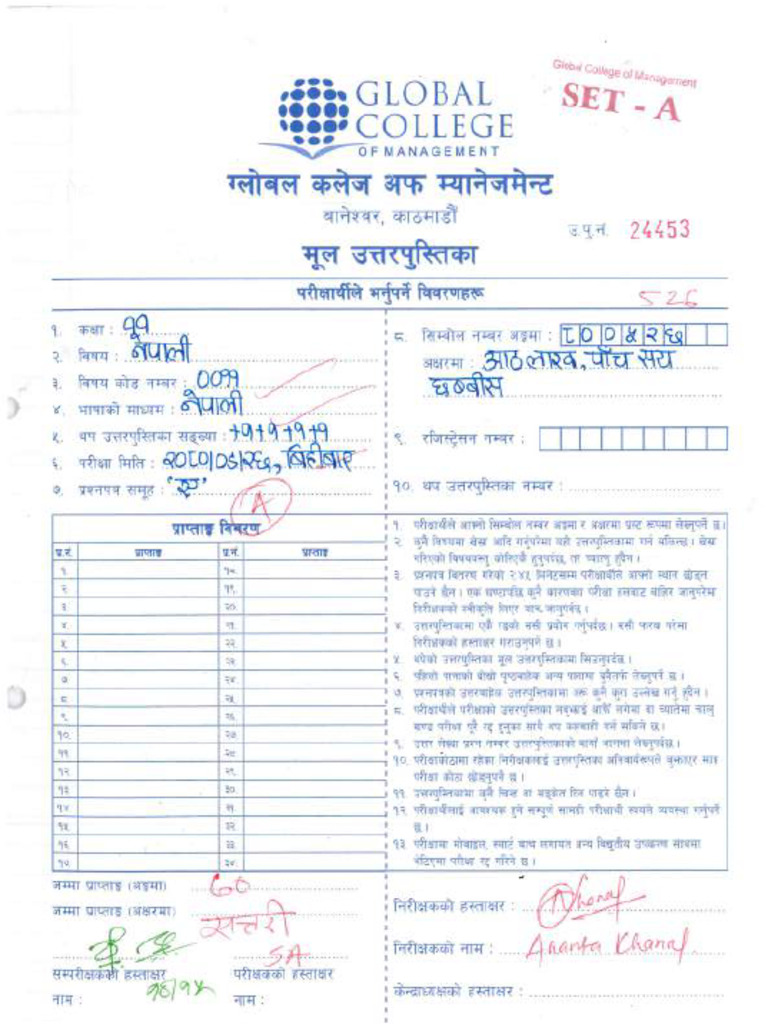 Global College of Management
SET - A
GLOBAL
COLLEGE
OF MANAGEMENT
ग्लोबल कलेज अफ म्यानेजमेन्ट
बानेश्वर, काठमाडौं
उ.पु.नं. 24453
मूल उत्तरपुस्तिका
परीक्षार्थीले भर्नुपर्ने विवरणहरू
526
१. कक्षा : ११
२. विषय : नेपाली
३. विषय कोड नम्बर : 00११
४. भाषाको माध्यम : नेपाली
५. थप उत्तरपुस्तिका सङ्ख्या : +१+१+१+१
६. परीक्षा मिति : २०८०/०८/२६, बिहीबार
७. प्रश्नपत्र समूह :
A
८. सिम्बोल नम्बर अङ्कमा : ८००५२६
अक्षरमा : आठ लाख, पाँच सय
छब्बीस
९. रजिस्ट्रेसन नम्बर :
१०. थप उत्तरपुस्तिका नम्बर :
प्राप्ताङ्क विवरण
प्र.नं. प्राप्ताङ्क प्र.नं. प्राप्ताङ्क
१. १८.
२. १९.
३. २०.
४. २१.
५. २२.
६. २३.
७. २४.
८. २५.
९. २६.
१०. २७.
११. २८.
१२. २९.
१३. ३०.
१४. ३१.
१५. ३२.
१६. ३३.
१७. ३४.
१. परीक्षार्थीले आफ्नो सिम्बोल नम्बर अङ्कमा र अक्षरमा प्रष्ट रूपमा लेख्नुपर्ने छ।
२. कुनै विषयमा खेस्रा आदि गर्नुपरेमा यही उत्तरपुस्तिकामा गर्न सकिन्छ। खेस्रा
३. प्रश्नपत्र वितरण गरेको २४५ मिनेटसम्म परीक्षार्थीले आफ्नो स्थान छोड्न
पाउने छैन। एक घण्टापछि कुनै कारणवश परीक्षा हलबाट बाहिर जानुपरेमा
निरीक्षकको स्वीकृति लिएर मात्र जानुपर्नेछ।
४. उत्तरपुस्तिकामा एकै रङको मसी प्रयोग गर्नुपर्दछ। मसी फरक परेमा
निरीक्षकको हस्ताक्षर गराउनुपर्ने छ।
५. थपेको उत्तरपुस्तिका मूल उत्तरपुस्तिकामा सिउनुपर्दछ।
६. पहिलो पानाको बाँया पृष्ठबाहेक अन्य पानामा दुवैतर्फ लेख्नुपर्ने छ।
७. प्रश्नपत्रको उत्तरबाहेक उत्तरपुस्तिकामा अरू कुनै कुरा उल्लेख गर्नु हुँदैन।
९. उत्तर लेख्दा प्रश्न नम्बर उत्तरपुस्तिकाको बायाँ भागमा लेख्नुपर्दछ।
१०. परीक्षाकोठामा रहेका निरीक्षकलाई उत्तरपुस्तिका अनिवार्यरूपले बुझाएर मात्र
परीक्षा कोठा छोड्नुपर्ने छ।
११. उत्तरपुस्तिकामा कुनै चिन्ह वा सङ्केत दिन पाइने छैन।
१२. परीक्षार्थीलाई आवश्यक हुने सम्पूर्ण सामग्री परीक्षार्थी स्वयंले व्यवस्था गर्नुपर्ने
छ।
१३. परीक्षामा मोबाइल, स्मार्ट वाच लगायत अन्य विद्युतीय उपकरण साथमा
भेटिएमा परीक्षा रद्द गरिने छ।
जम्मा प्राप्ताङ्क (अङ्कमा) ७०
जम्मा प्राप्ताङ्क (अक्षरमा) सत्तरी
सम्परीक्षकको हस्ताक्षर
नाम :
SA
परीक्षकको हस्ताक्षर
नाम :
निरीक्षकको हस्ताक्षर :
निरीक्षकको नाम : Ananta Khanal
केन्द्राध्यक्षको हस्ताक्षर :